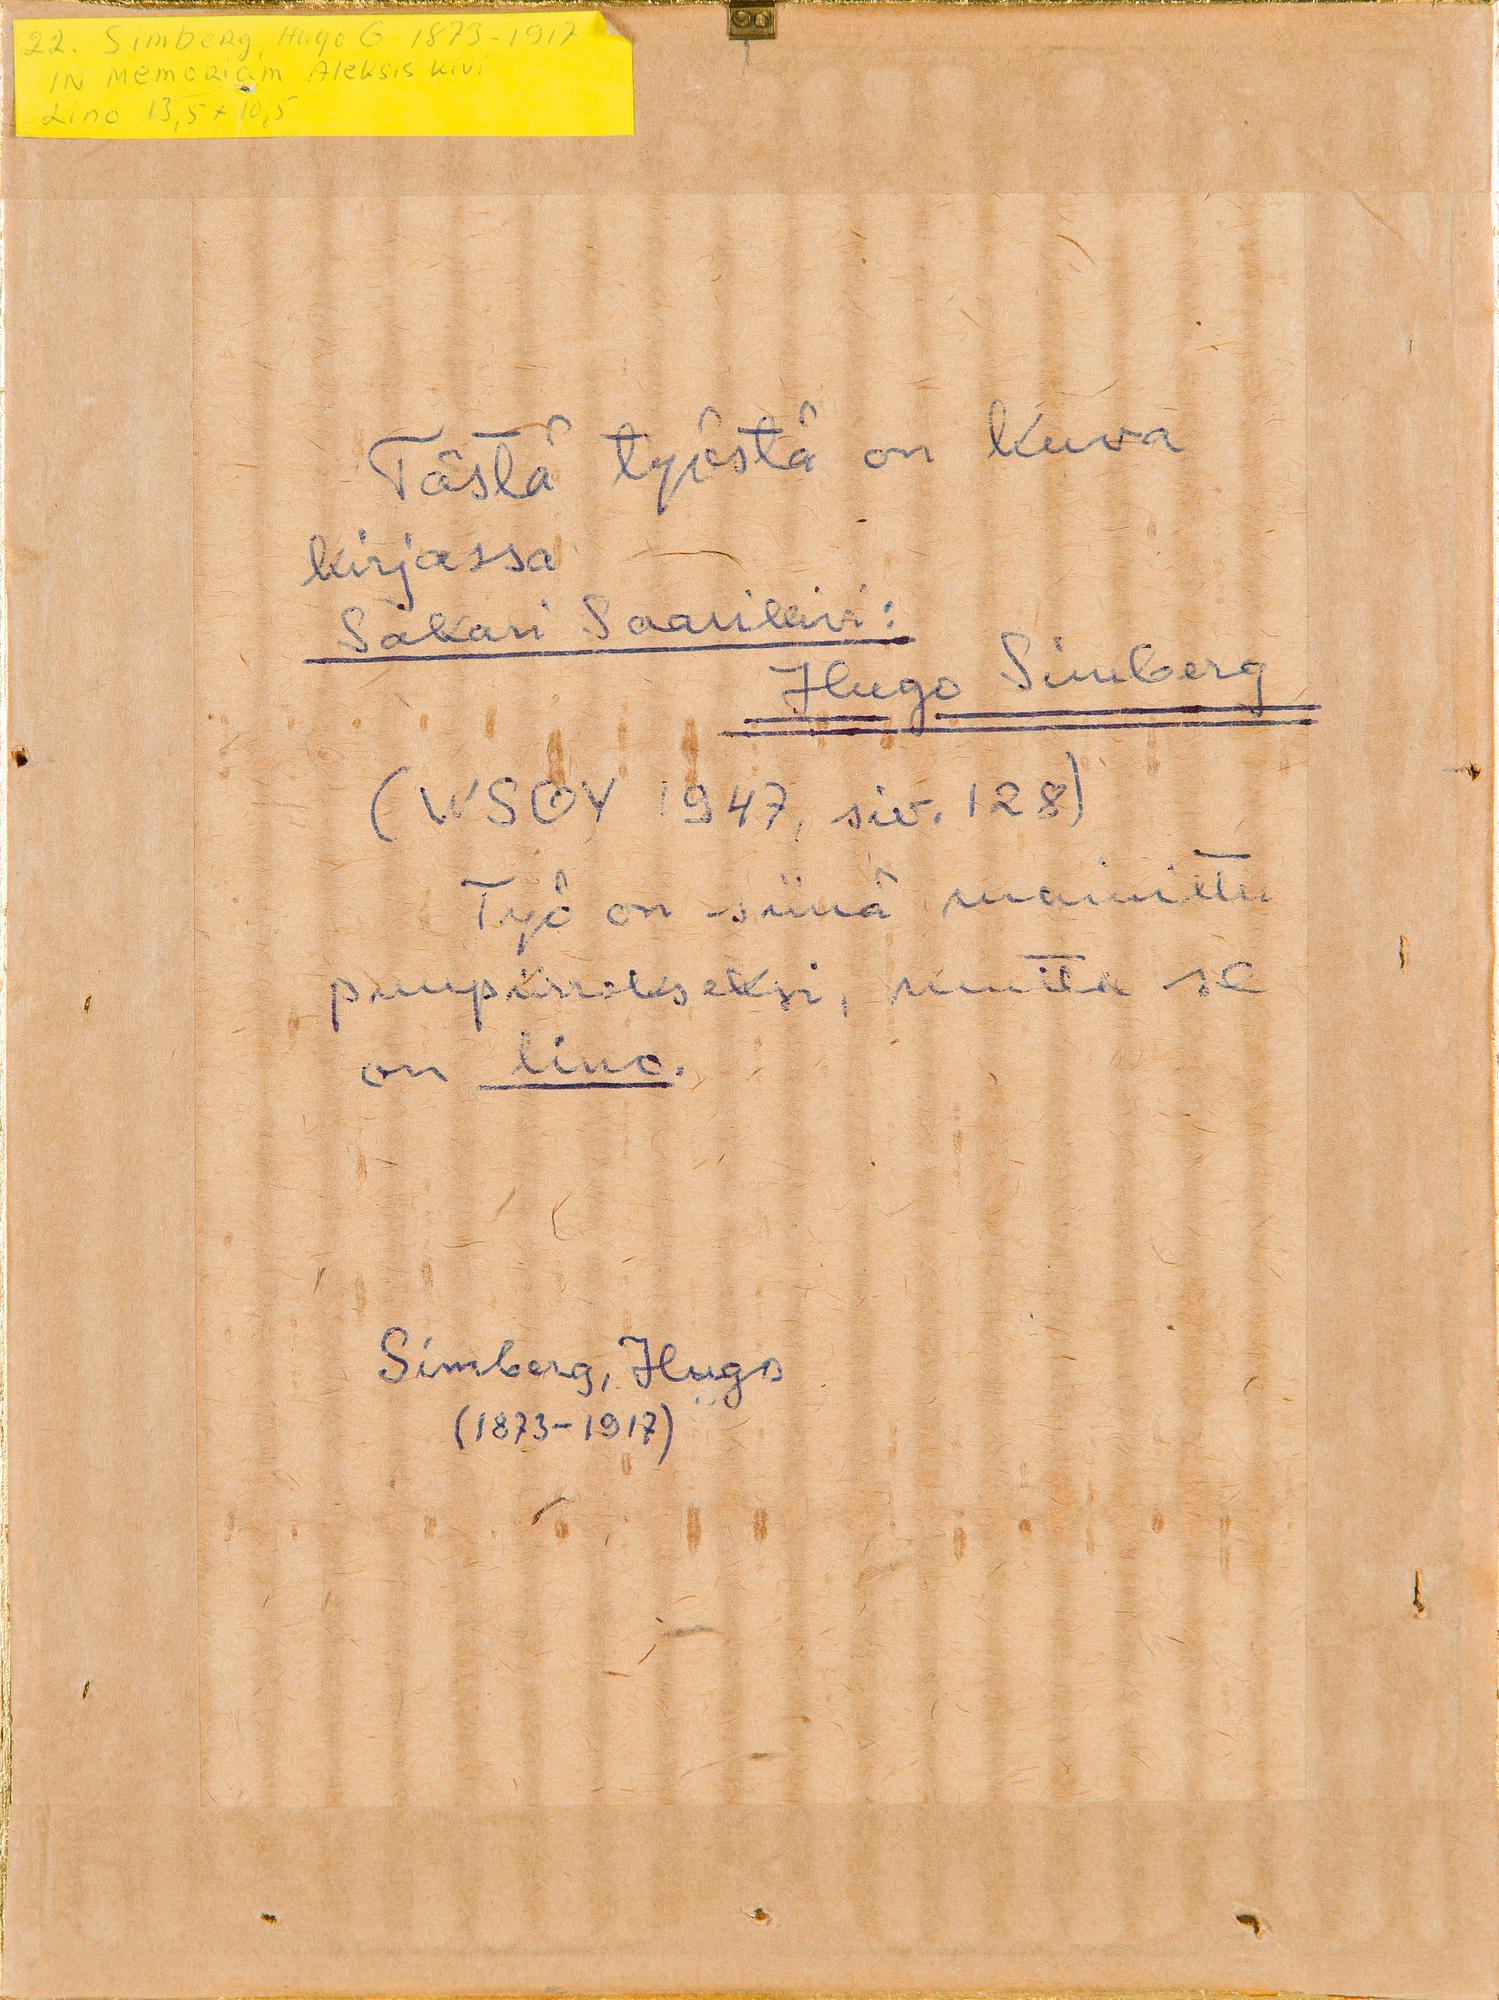 22. Simberg, Hugo G 1873-1917
IN Memoriam Aleksis Kivi
Lino 13,5 x 10,5
Tästä työstä on kuva
kirjassa
Sakari Saarikivi:
Hugo Simberg
(WSOY 1947, siv. 128)
Työ on siinä mainittu
puupiirrokseksi, mutta se
on lino.
Simberg, Hugo
(1873-1917)